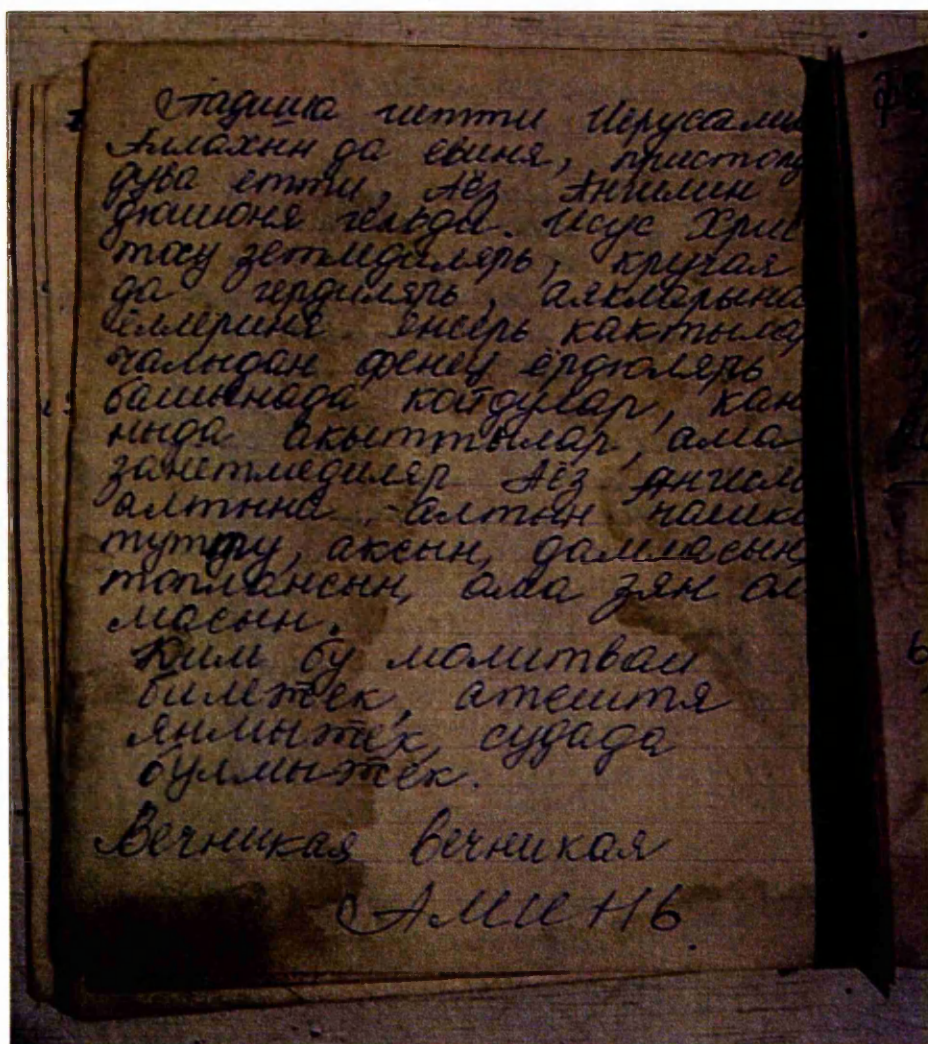 Падиша гитти Иерусалим
Аллахын да евиня, пристол
дува етти, Аёз Ангилин
дюшюня гельди. Исус Хрис
тосу зетледилярь, кругая
да гердилярь, аякларына
ёллериня енсерь кактыла
чалыдан фенец ёрдюлярь
башынада койдулар, кан
ныда акыттылар, ама
занетмедиляр Аёз Ангил
алтына - алтын чашка
тутту, аксын, дамласын,
топлансын, ама зян ол
масын.
Ким бу молитваи
билежек, атештя
янмыжек, судада
булмыжек.
Вечникая вечникая
АМИНЬ.